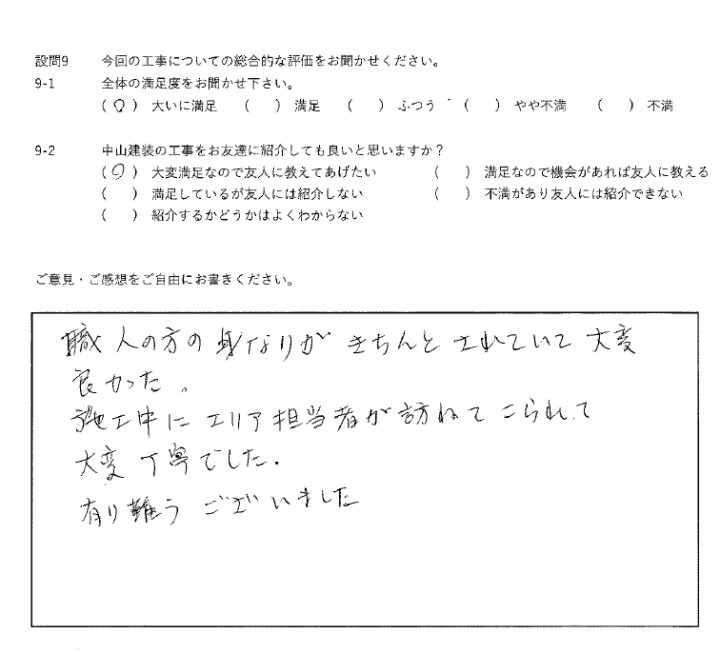 設問9 今回の工事についての総合的な評価をお聞かせください。
9-1 全体の満足度をお聞かせ下さい。
(○) 大いに満足 ( ) 満足 ( ) ふつう ( ) やや不満 ( ) 不満
9-2 中山建装の工事をお友達に紹介しても良いと思いますか？
(○) 大変満足なので友人に教えてあげたい ( ) 満足なので機会があれば友人に教える
( ) 満足しているが友人には紹介しない ( ) 不満があり友人には紹介できない
( ) 紹介するかどうかはよくわからない
ご意見・ご感想をご自由にお書きください。
職人の方の身なりがきちんとされていて大変
良かった。
施工中にエリア担当者が訪ねてこられて
大変丁寧でした.
有り難うございました